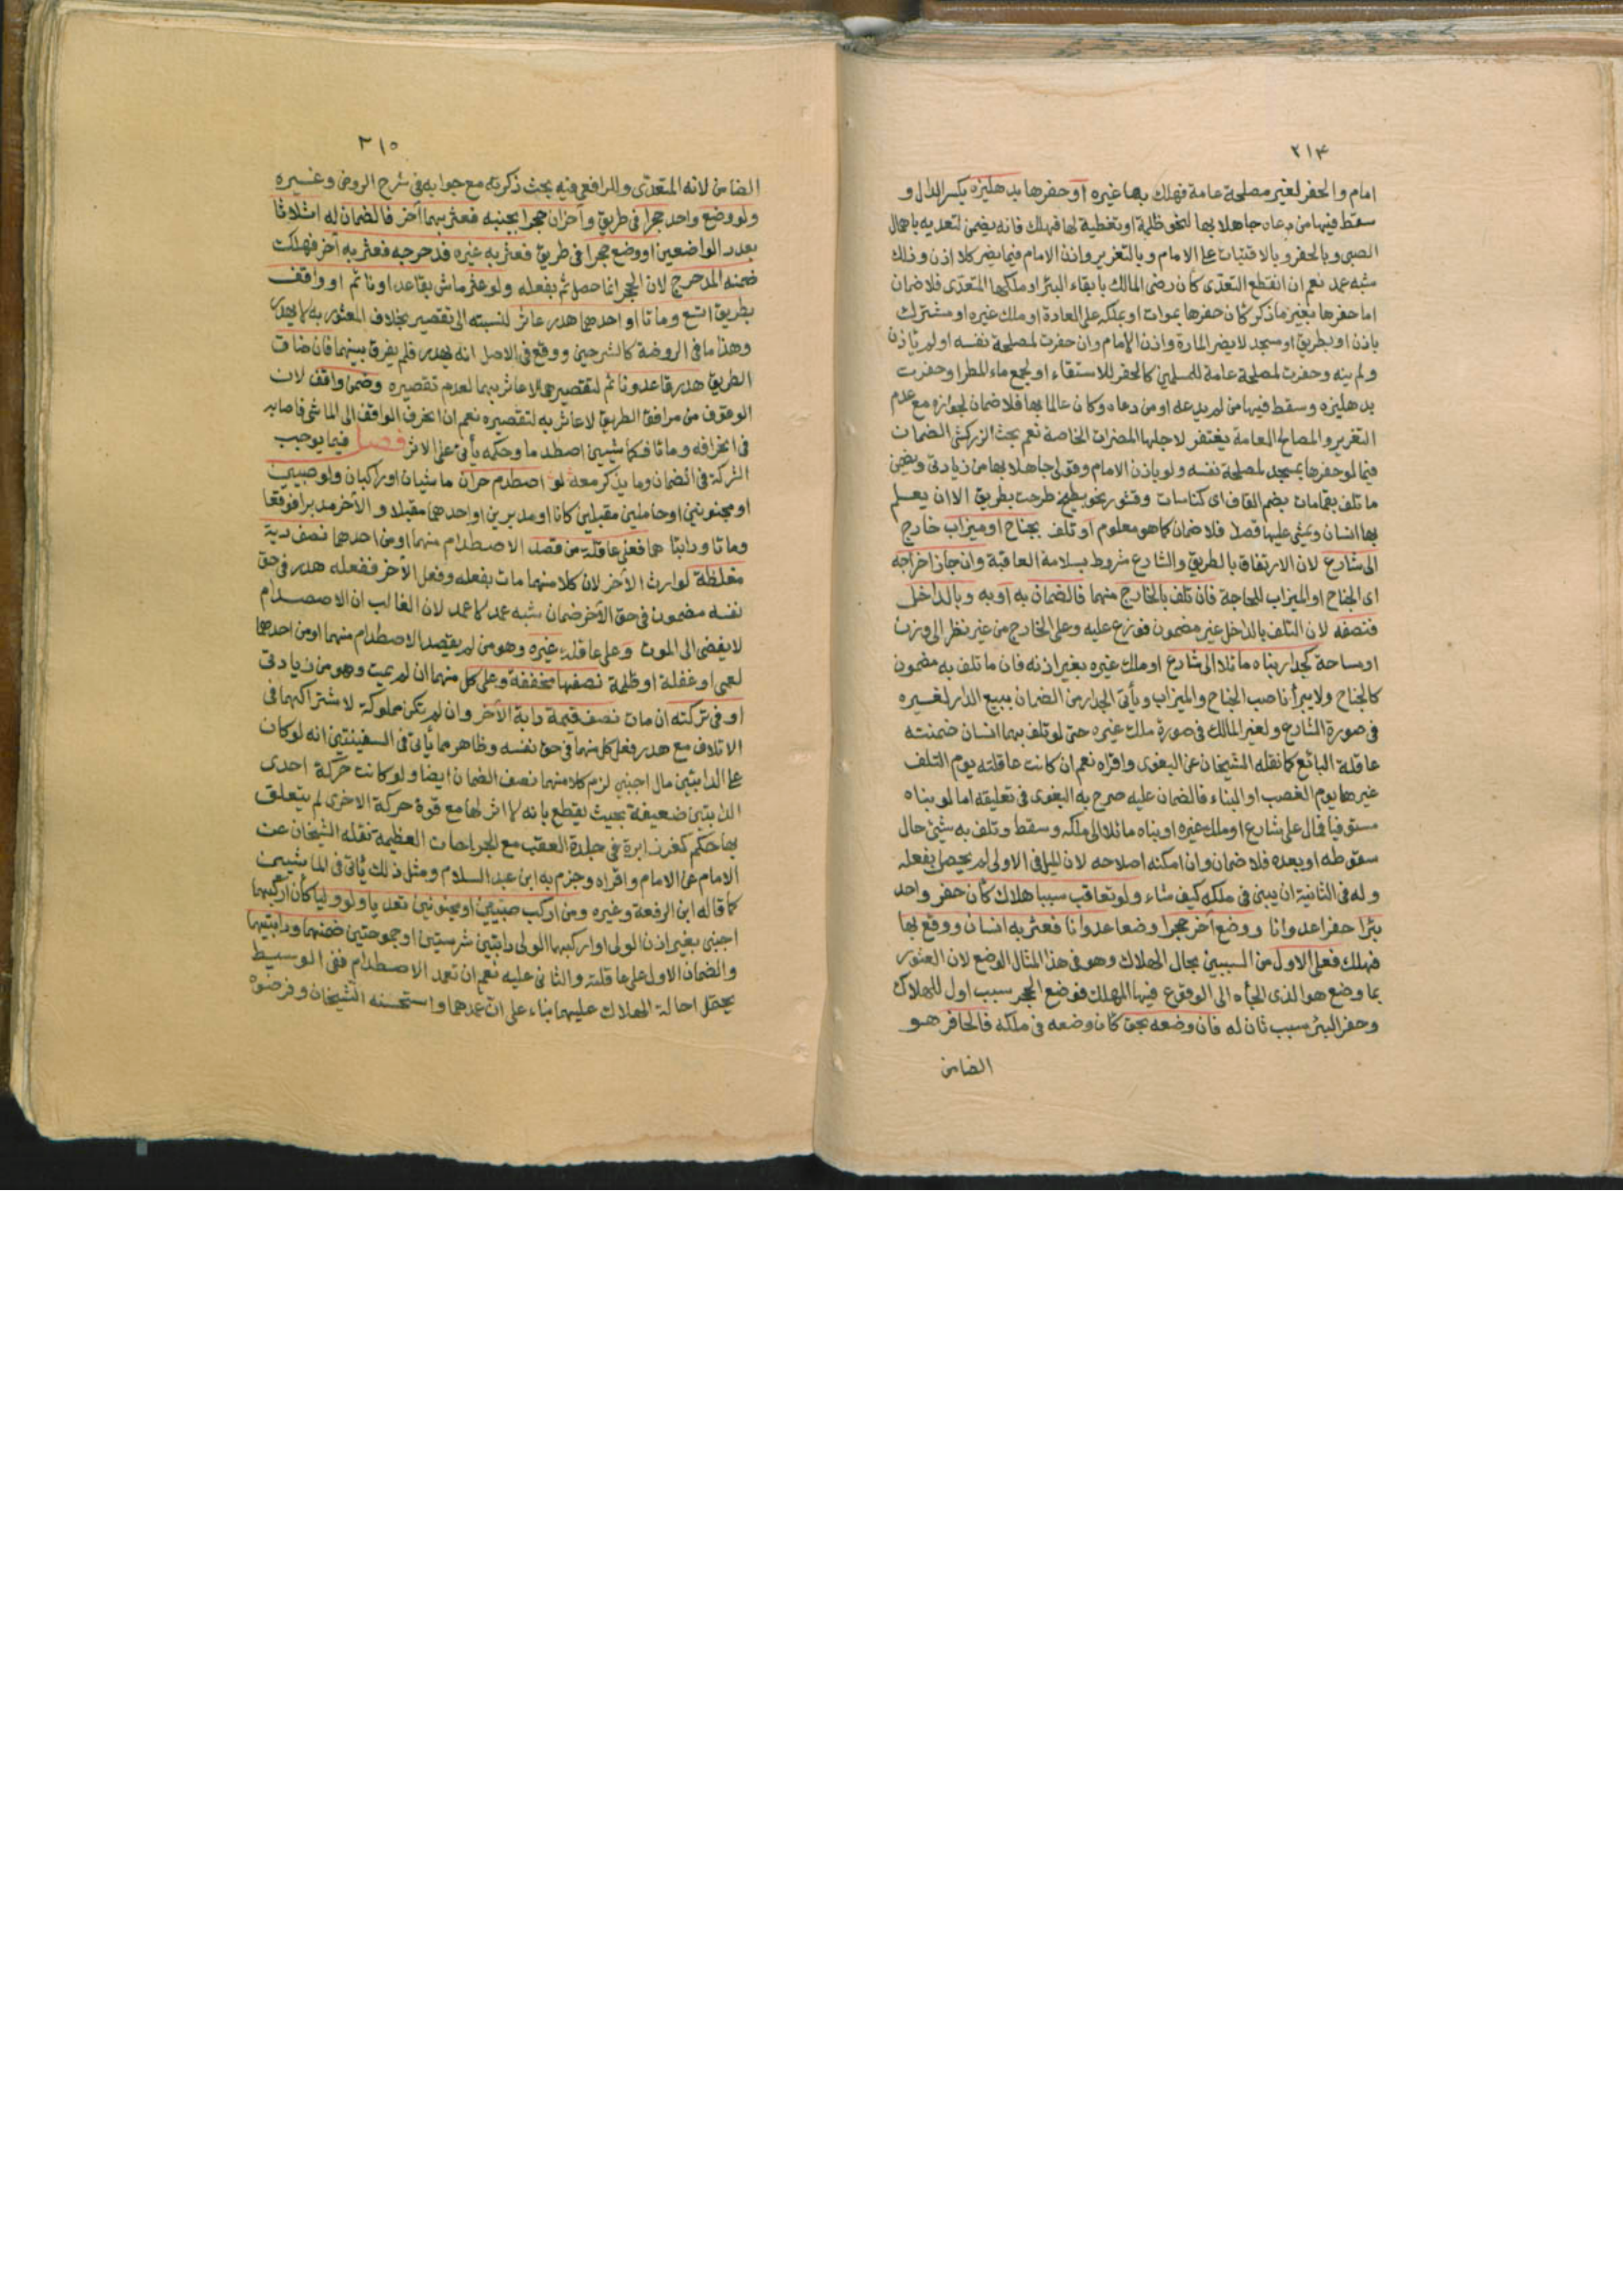 ٢١٤
امام والحفر لغير مصلحة عامة فهلك بها غيره او حفرها بدهليزه بكسر الدال و
سقط فيها من دعاه جاهلا بها لنحو ظلمة او تغطية لها فهلك فانه يضمن لتعديه باهمال
الصبى وبالحفر وبالافتيات على الامام وبالتغرير واذن الامام فيما يضر كلا اذن وذلك
شبه عمد نعم ان انقطع التعدى كان رضى المالك بابقاء البئر او ملكها المتعدى فلا ضمان
اما حفرها بغير ما ذكر كان حفرها بموات او بملكه على العادة او ملك غيره او مشترك
باذن او بطريق او مسجد لا يضر المارة واذن الامام وان حفرت لمصلحة نفسه او لم ياذن
ولم ينه وحفرت لمصلحة عامة للمسلمين كالحفر للاستقاء او لجمع ماء المطر او حفرت
بدهليزه وسقط فيها من لم يدعه او من دعاه وكان عالما بها فلا ضمان لجوازه مع عدم
التغرير والمصالح العامة يغتفر لاجلها المضرات الخاصة نعم بحث الزركشى الضمان
فيما لو حفرها بمسجد لمصلحة نفسه ولو باذن الامام وقولى جاهلا بها من زيادتى ويضمن
ما تلف بقمامات بضم القاف اى كناسات وقشور نحو بطيخ طرحت بطريق الا ان يعلم
بها انسان ويمشى عليها قصدا فلا ضمان كما هو معلوم او تلف بجناح او ميزاب خارج
الى شارع لان الارتفاق بالطريق والشارع مشروط بسلامة العاقبة وان جاز اخراجه
اى الجناح او الميزاب للحاجة فان تلف بالخارج منهما فالضمان به او به وبالداخل
فنصفه لان التلف بالداخل غير مضمون فوزع عليه وعلى الخارج من غير نظر الى وزن
او مساحة كجدار بناه مائلا الى شارع او ملك غيره بغير اذنه فان ما تلف به مضمون
كالجناح ولا يبرأ ناصب الجناح والميزاب وبانى الجدار من الضمان ببيع الدار لغيره
فى صورة الشارع ولغير المالك فى صورة ملك غيره حتى لو تلف بهما انسان ضمنته
عاقلة البائع كما نقله الشيخان عن البغوى واقراه نعم ان كانت عاقلته يوم التلف
غيرها يوم الغصب او البناء فالضمان عليه صرح به البغوى فى تعليقه اما لو بناه
مستوفيا فمال على شارع او ملك غيره او بناه مائلا الى ملكه وسقط وتلف به شئ حال
سقوطه او بعده فلا ضمان وان امكنه اصلاحه لان الميل فى الاولى لم يحصل بفعله
وله فى الثانية ان يبنى فى ملكه كيف شاء ولو تعاقب سببا هلاك كان حفر واحد
بئرا حفرا عدوانا ووضع آخر حجرا وضعا عدوانا فعثر به انسان ووقع بها
فهلك فعلى الاول من السببين يحال الهلاك وهو فى هذا المثال الوضع لان العثور
بما وضع هو الذى الجأه الى الوقوع فيها المهلك فوضع الحجر سبب اول للهلاك
وحفر البئر سبب ثان له فان وضعه بحق كان وضعه فى ملكه فالحافر هو
الضامن
٢١٥
الضامن لانه المتعدى وللرافعى فيه بحث ذكرته مع جوابه فى شرح الروض وغيره
ولو وضع واحد حجرا فى طريق وآخران حجرا بجنبه فعثر بهما آخر فالضمان له اثلاثا
بعدد الواضعين او وضع حجرا فى طريق فعثر به غيره فدحرجه فعثر به آخر فهلك
ضمنه المدحرج لان الحجر انما حصل ثم بفعله ولو عثر ماش بقاعد او نائم او واقف
بطريق اتسع وماتا او احدهما هدر عاثر لنسبته الى تقصير بخلاف المعثور به لا يهدر
وهذا ما فى الروضة كالشرحين ووقع فى الاصل انه يهدر فلم يفرق بينهما فان ضاق
الطريق هدر قاعد ونائم لتقصيرهما لا عاثر بهما لعدم تقصيره وضمن واقف لان
الوقوف من مرافق الطريق لا عاثر به لتقصيره نعم ان انحرف الواقف الى الماشى فاصابه
فى انحرافه وماتا فكماشيين اصطدما وحكمه يأتى على الاثر فصل فيما يوجب
الشركة فى الضمان وما يذكر معه لو اصطدم حران ماشيان او راكبان ولو صبيين
او مجنونين او حاملين مقبلين كانا او مدبرين او احدهما مقبلا والآخر مدبرا فوقعا
وماتا ودابتا هما فعلى عاقلة من قصد الاصطدام منهما او من احدهما نصف دية
مغلظة لوارث الآخر لان كلا منهما مات بفعله وفعل الآخر ففعله هدر فى حق
نفسه مضمون فى حق الآخر ضمان شبه عمد لا عمد لان الغالب ان الاصصدام
لا يفضى الى الموت وعلى عاقلة غيره وهو من لم يقصد الاصطدام منهما او من احدهما
لعمى او غفلة او ظلمة نصفها مخففة وعلى كل منهما ان لم يمت وهو من زيادتى
او فى تركته ان مات نصف قيمة دابة الآخر وان لم تكن مملوكة لاشتراكهما فى
الاتلاف مع هدر فعل كل منهما فى حق نفسه وظاهر مما يأتى فى السفينتين انه لو كان
على الدابتين مال اجنبى لزم كلا منهما نصف الضمان ايضا ولو كانت حركة احدى
الدابتين ضعيفة بحيث يقطع بانه لا اثر لها مع قوة حركة الاخرى لم يتعلق
بها حكم كغرز ابرة فى جلدة العقب مع الجراحات العظيمة نقله الشيخان عن
الامام عن الامام واقراه وجزم به ابن عبد السلام ومثل ذلك يأتى فى الماشيين
كما قاله ابن الرفعة وغيره ومن اركب صبيين او مجنونين تعديا ولو وليا كان اركبهما
اجنبى بغير اذن الولى او اركبهما الولى دابتين شرستين او جموحتين ضمنهما ودابتيهما
والضمان الاول على عاقلته والثانى عليه نعم ان تعمد الاصطدام ففى الوسيط
يحتمل احالة الهلاك عليهما بناء على ان عمدهما واستحسنه الشيخان وفرضوه